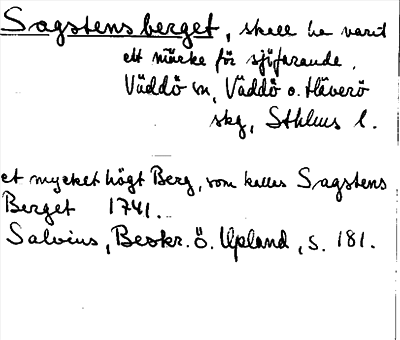 Sagstensberget, skall ha varit
ett märke för sjöfarande.
Väddö sn, Väddö o. Häverö
skg, Sthlms l.
et mycket högt Berg, som kallas Sagstens
Berget 1741.
Salvius, Beskr. ö. Upland, s. 181.